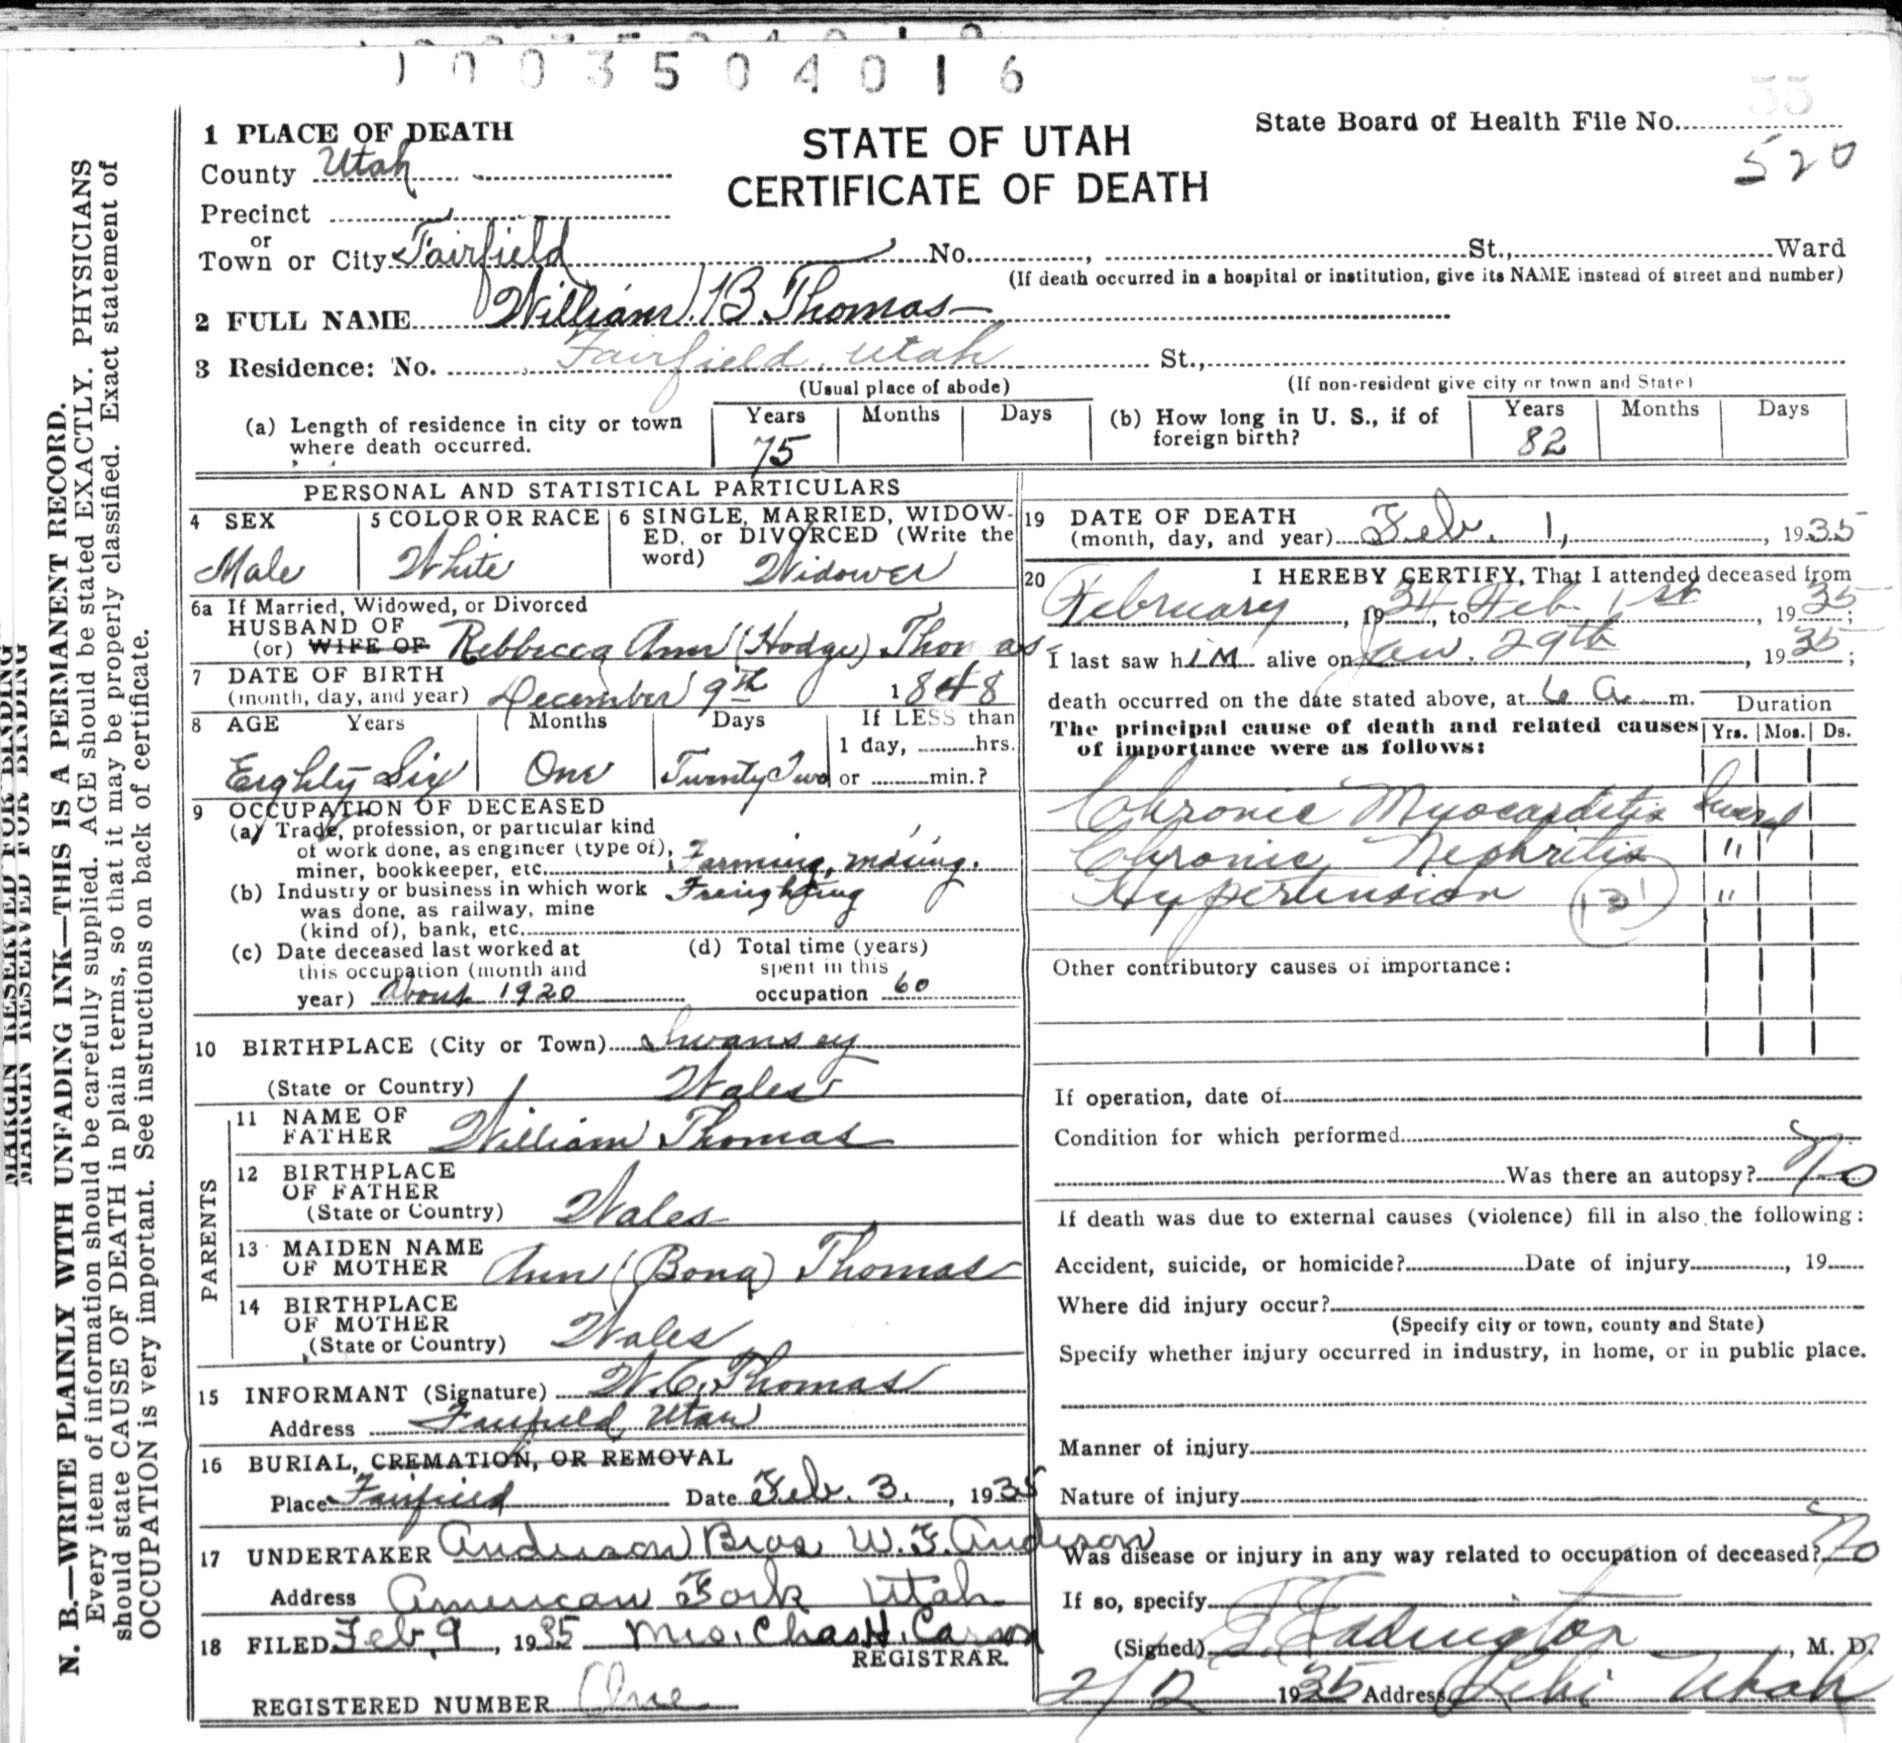 1003504016
55
1 PLACE OF DEATH
County Utah
Precinct
or
Town or City Fairfield No. , St., Ward
(If death occurred in a hospital or institution, give its NAME instead of street and number)
STATE OF UTAH
CERTIFICATE OF DEATH
State Board of Health File No.
520
2 FULL NAME William B. Thomas
3 Residence: No. Fairfield, Utah St.,
(Usual place of abode)
(If non-resident give city or town and State)
(a) Length of residence in city or town
where death occurred.
Years Months Days
75
(b) How long in U. S., if of
foreign birth?
Years Months Days
82
PERSONAL AND STATISTICAL PARTICULARS
4 SEX
Male
5 COLOR OR RACE
White
6 SINGLE, MARRIED, WIDOW-
ED, or DIVORCED (Write the
word) Widower
6a If Married, Widowed, or Divorced
HUSBAND OF
(or) WIFE OF Rebbecca Ann (Hodge) Thomas
7 DATE OF BIRTH
(month, day, and year) December 9th 1848
8 AGE Years Months Days If LESS than
1 day, hrs.
Eighty Six One Twenty Two or min.?
9 OCCUPATION OF DECEASED
(a) Trade, profession, or particular kind
of work done, as engineer (type of),
miner, bookkeeper, etc. Farming, mining.
(b) Industry or business in which work Freighting
was done, as railway, mine
(kind of), bank, etc.
(c) Date deceased last worked at
this occupation (month and
year) About 1920
(d) Total time (years)
spent in this
occupation 60
10 BIRTHPLACE (City or Town) Swansey
(State or Country) Wales
PARENTS
11 NAME OF
FATHER William Thomas
12 BIRTHPLACE
OF FATHER
(State or Country) Wales
13 MAIDEN NAME
OF MOTHER Ann (Bona) Thomas
14 BIRTHPLACE
OF MOTHER
(State or Country) Wales
15 INFORMANT (Signature) W. C. Thomas
Address Fairfield Utah
16 BURIAL, CREMATION, OR REMOVAL
Place Fairfield Date Feb. 3, 1935
17 UNDERTAKER Anderson Bros W. F. Anderson
Address American Fork Utah
18 FILED Feb 9, 1935 Mrs. Chas H. Carson
REGISTRAR.
REGISTERED NUMBER One
19 DATE OF DEATH
(month, day, and year) Feb. 1, 1935
20 I HEREBY CERTIFY, That I attended deceased from
February, 1934, to Feb 1st, 1935;
I last saw him alive on Jan. 29th, 1935;
death occurred on the date stated above, at 6 a. m.
The principal cause of death and related causes
of importance were as follows:
Duration
Yrs. Mos. Ds.
Chronic Myocarditis Several
Chronic Nephritis "
Hypertension "
Other contributory causes of importance:
If operation, date of
Condition for which performed
Was there an autopsy? No
If death was due to external causes (violence) fill in also the following:
Accident, suicide, or homicide? Date of injury , 19
Where did injury occur?
(Specify city or town, county and State)
Specify whether injury occurred in industry, in home, or in public place.
Manner of injury
Nature of injury
Was disease or injury in any way related to occupation of deceased? No
If so, specify
(Signed) Eddington, M. D.
2/2 1935 Address Lehi Utah
MARGIN RESERVED FOR BINDING
MARGIN RESERVED FOR BINDING
N. B.—WRITE PLAINLY WITH UNFADING INK—THIS IS A PERMANENT RECORD.
Every item of information should be carefully supplied. AGE should be stated EXACTLY. PHYSICIANS
should state CAUSE OF DEATH in plain terms, so that it may be properly classified. Exact statement of
OCCUPATION is very important. See instructions on back of certificate.